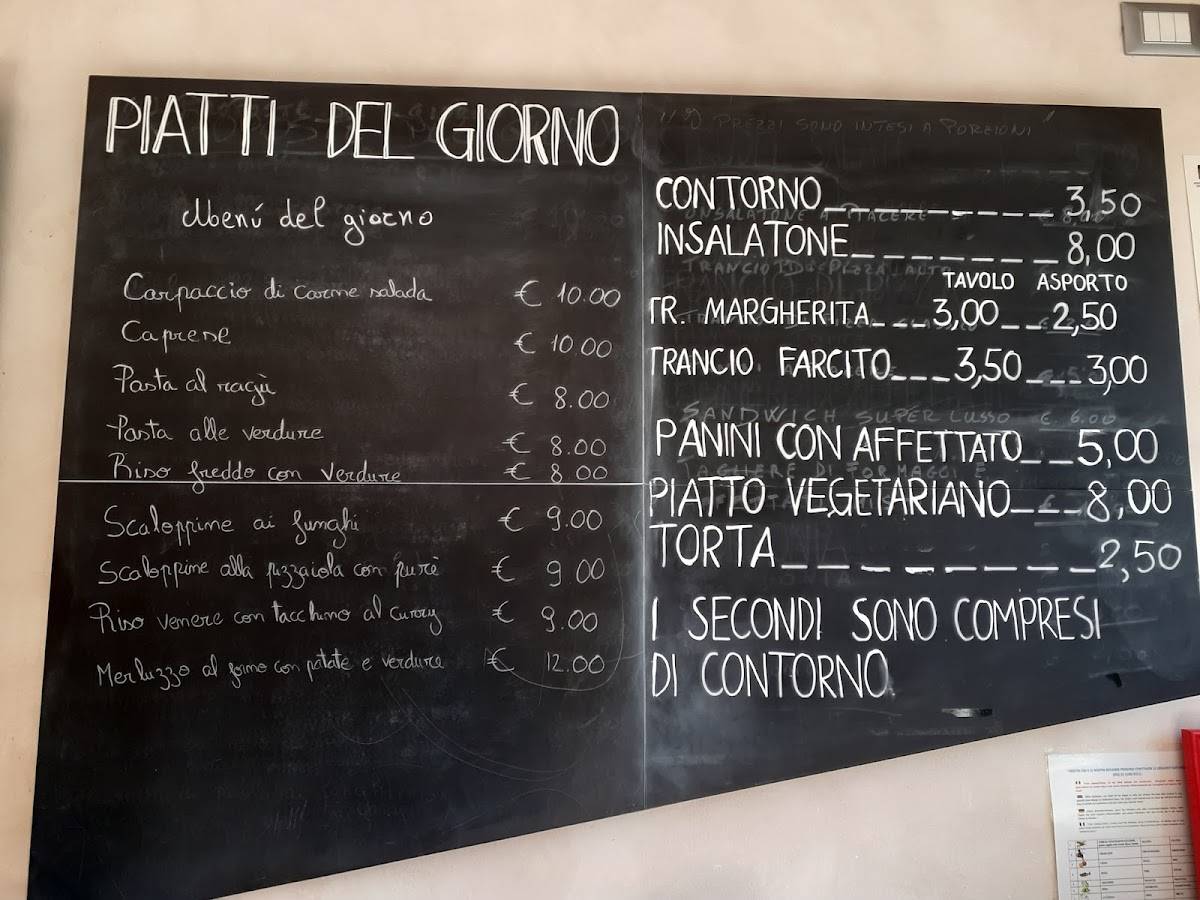 PIATTI DEL GIORNO
Menú del giorno
Carpaccio di carne salada € 10.00
Caprese € 10.00
Pasta al ragù € 8.00
Pasta alle verdure € 8.00
Riso freddo con verdure € 8.00
Scaloppine ai funghi € 9.00
Scaloppine alla pizzaiola con purè € 9.00
Riso venere con tacchino al curry € 9.00
Merluzzo al forno con patate e verdure € 12.00
I PREZZI SONO INTESI A PORZIONI
CONTORNO 3,50
INSALATONE 8,00
TAVOLO ASPORTO
TR. MARGHERITA 3,00 2,50
TRANCIO FARCITO 3,50 3,00
SANDWICH SUPER LUSSO € 6.00
PANINI CON AFFETTATO 5,00
PIATTO VEGETARIANO 8,00
TORTA 2,50
I SECONDI SONO COMPRESI
DI CONTORNO